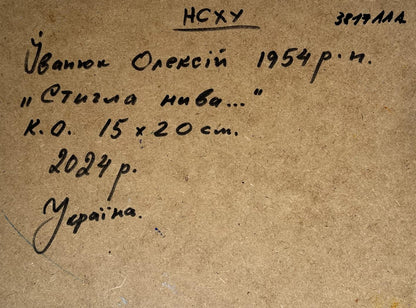 НСХУ 3817ААА
Йванюк Олексій 1954 р. н.
„Стигла нива..."
К.О. 15 х 20 см.
2024 р.
Україна.